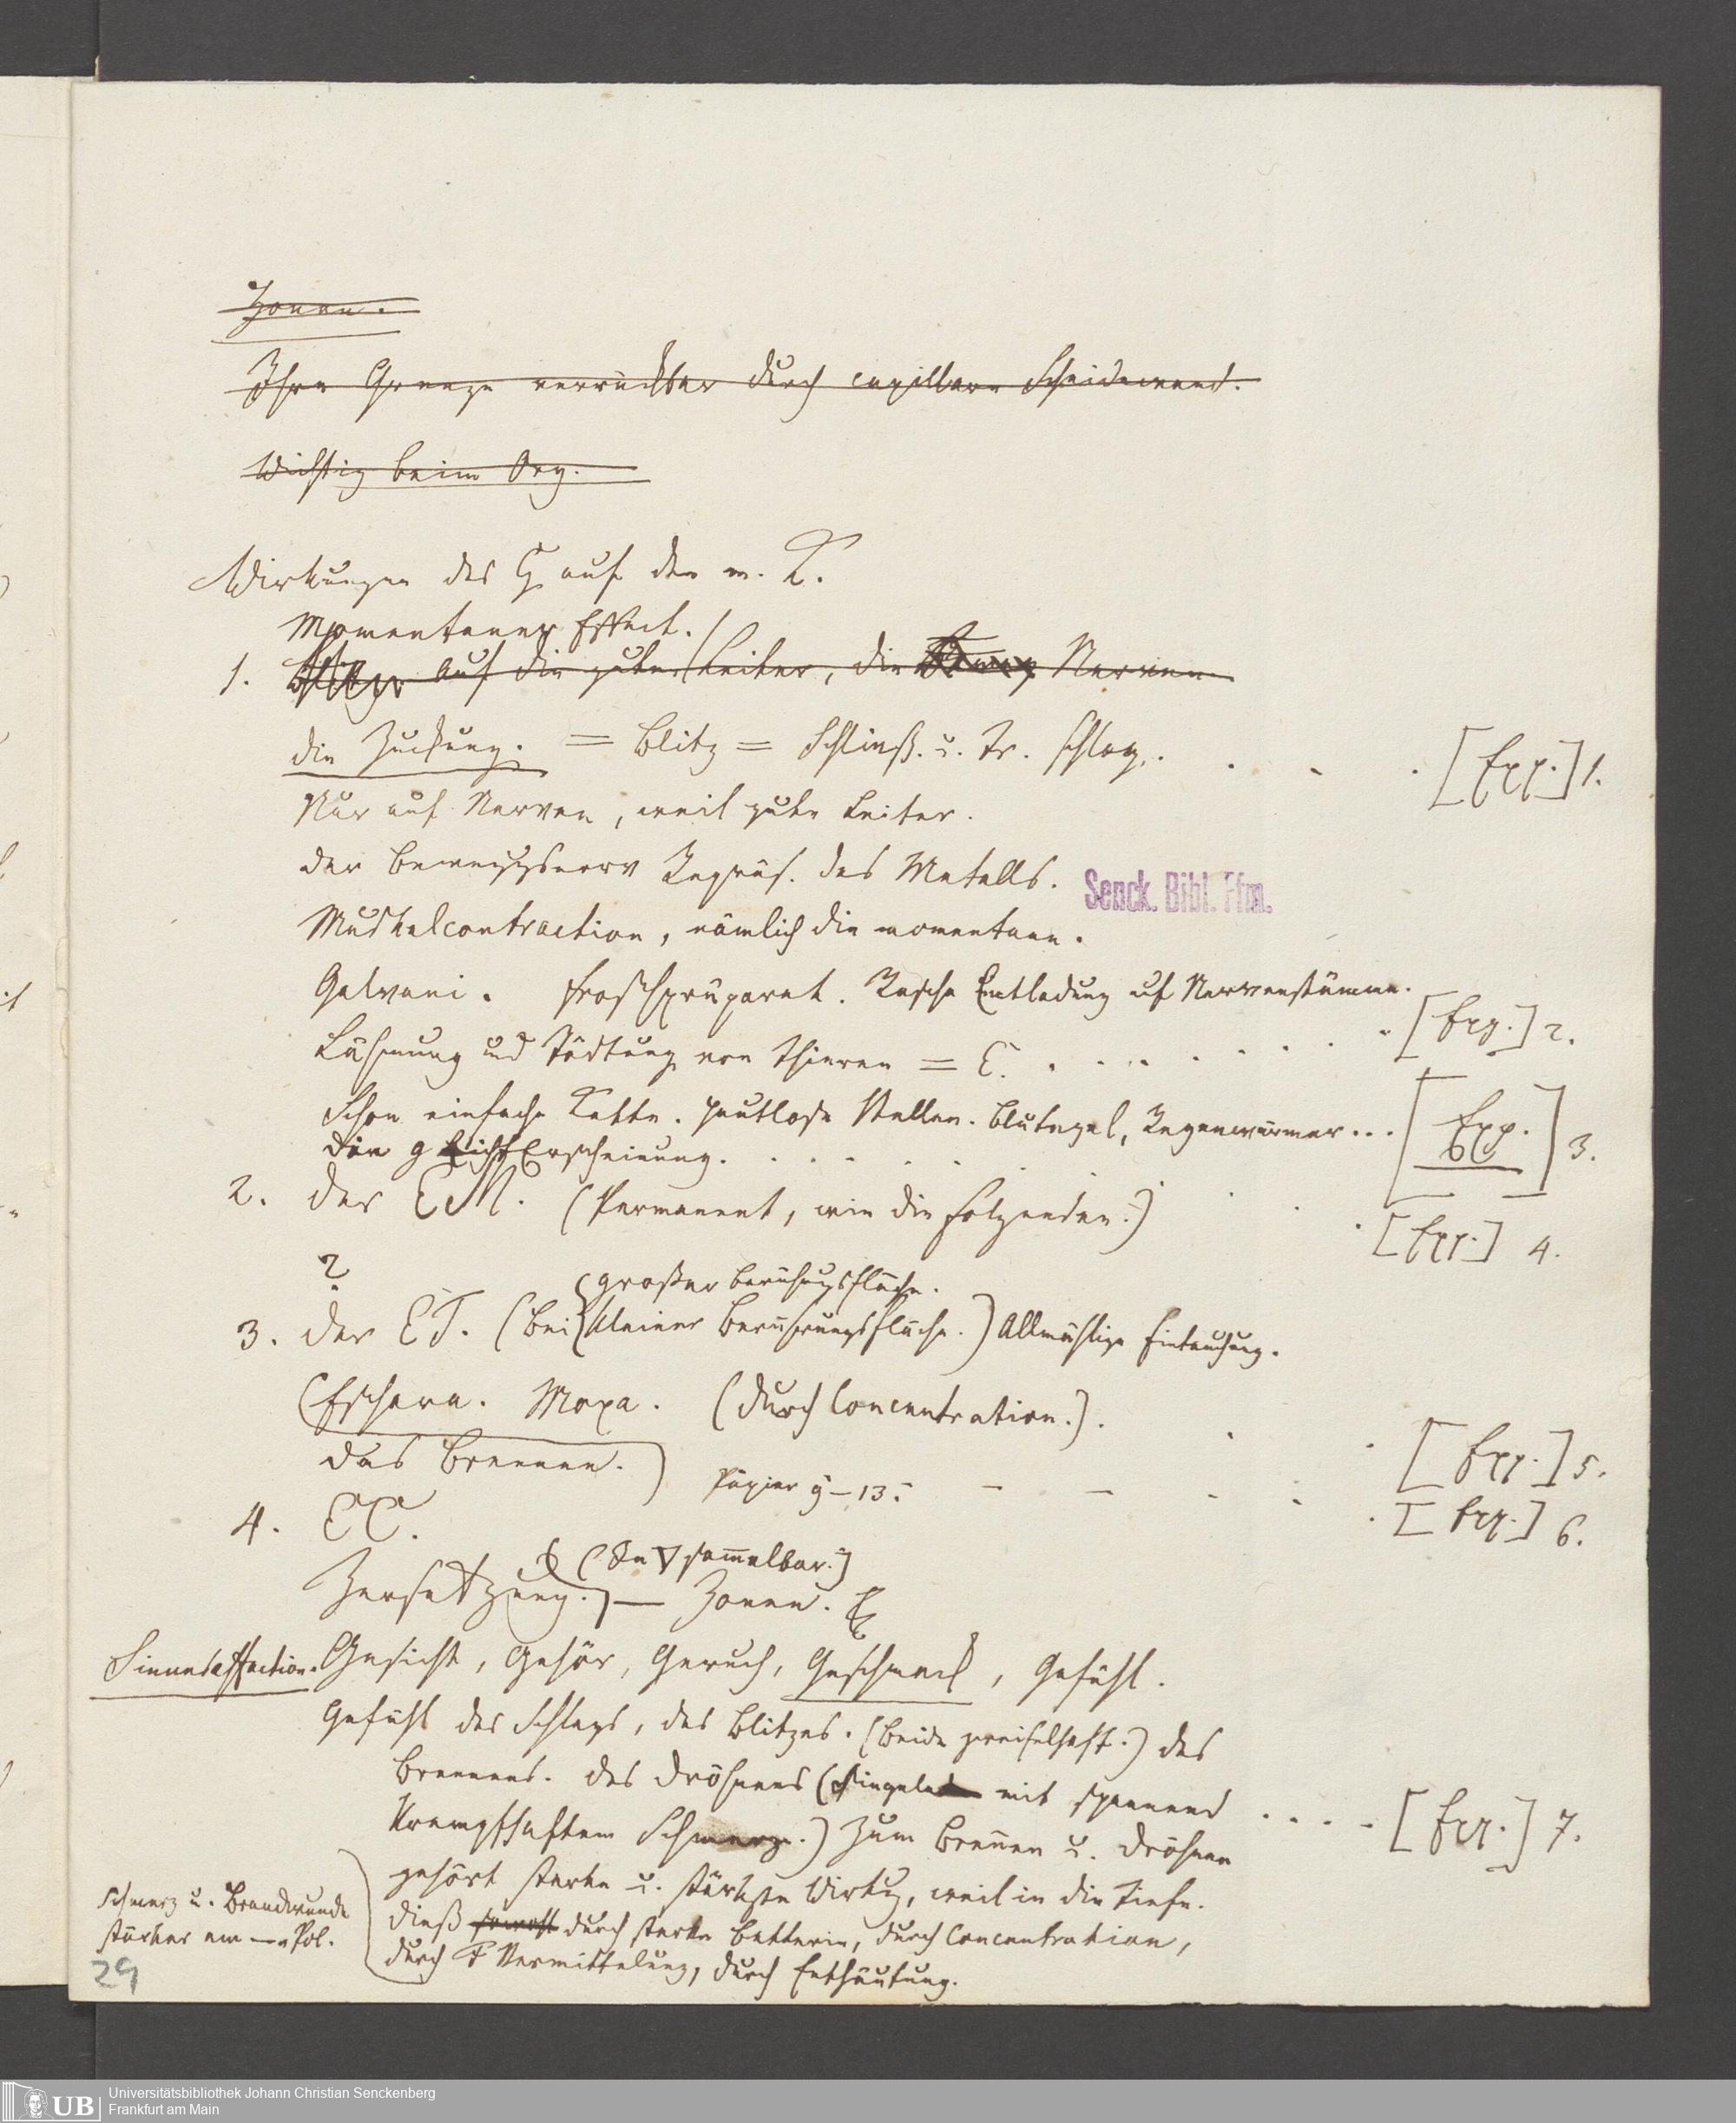 Zonen.
Ihre Grenze verrückbar durch capillare Scheidewand.
Wichtig beim Org.
Wirkungen des G auf den m. K.
Momentaner Effect.
1. auf die guten Leiter, die Nerven
die Zuckung. = Blitz = Schließ. u. Tr. Schlag. . . . [Exp.] 1.
Nur auf Nerven, weil gute Leiter.
der Bewegungsnerv Repräs. des Metalls.
Senck. Bibl. Ffm.
Muskelcontraction, nämlich die momentane.
Galvani. Froschpräparat. Rasche Entladung auf Nervenstämme.
Lähmung und Tödtung von Thieren = E. . . . . . . . . [Exp.] 2.
Schon einfache Kette. Hautlose Stellen. Blutegel, Regenwürmer... [Exp.] 3.
die Lichterscheinung. . . . . . . .
2. der EM. (Permanent, wie die Folgenden.) . . . [Exp.] 4.
?
großer Berührungsfläche.
3. der ET. (bei kleiner Berührungsfläche.) Allmählige Eintauchung.
(Eschara. Moxa. (durch Concentration.). . . [Exp.] 5.
das Brennen.) Papier g – 13. – – . . . [Exp.] 6.
4. EC.
(In ∇ sam̄elbar.)
Zersetzung. — Zonen.
Sinnesaffection. Gesicht, Gehör, Geruch, Geschmack, Gefühl.
Gefühl des Schlags, des Blitzes. (beide zweifelhaft.) des
Brennens. des Dröhnens (mit spannend . . . . [Exp.] 7.
krampfhaftem Schmerz.) Zum Breñen u. Dröhnen
gehört starke u. stärkste Wirkg, weil in die Tiefe.
Schmerz u. Brandwunde
stärker am — Pol.
dieß durch starke Batterie, durch Concentration,
durch Vermittelung, durch Enthäutung.
29
UB
Universitätsbibliothek Johann Christian Senckenberg
Frankfurt am Main